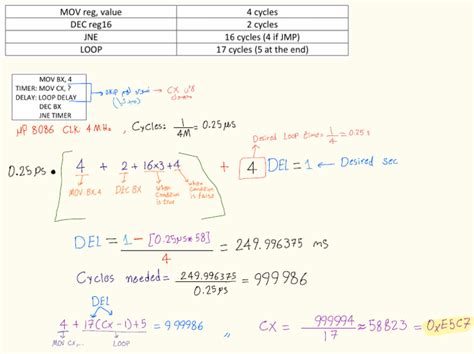 MOV reg, value 4 cycles
DEC reg16 2 cycles
JNE 16 cycles (4 if JMP)
LOOP 17 cycles (5 at the end)
MOV BX, 4
TIMER: MOV CX, ?
DELAY: LOOP DELAY
DEC BX
JNE TIMER
CX
μP 8086 CLK: 4MHz, Cycles: 1/4M = 0.25μs
Desired Loop time = 1/4 = 0.25 s
0.25μs • [ 4 + 2 + 16×3+4 ] + 4 DEL = 1 ← Desired sec
MOV BX,4 DEC BX when condition is true when condition is false
DEL = 1 - [0.25μs * 58] / 4 = 249.996375 ms
Cycles needed = 249.996375 / 0.25μs = 999986
DEL
4 + 17(CX-1)+5 = 999986 ,, CX = 999994 / 17 ≈ 58823 = 0xE5C7
MOV CX,... LOOP